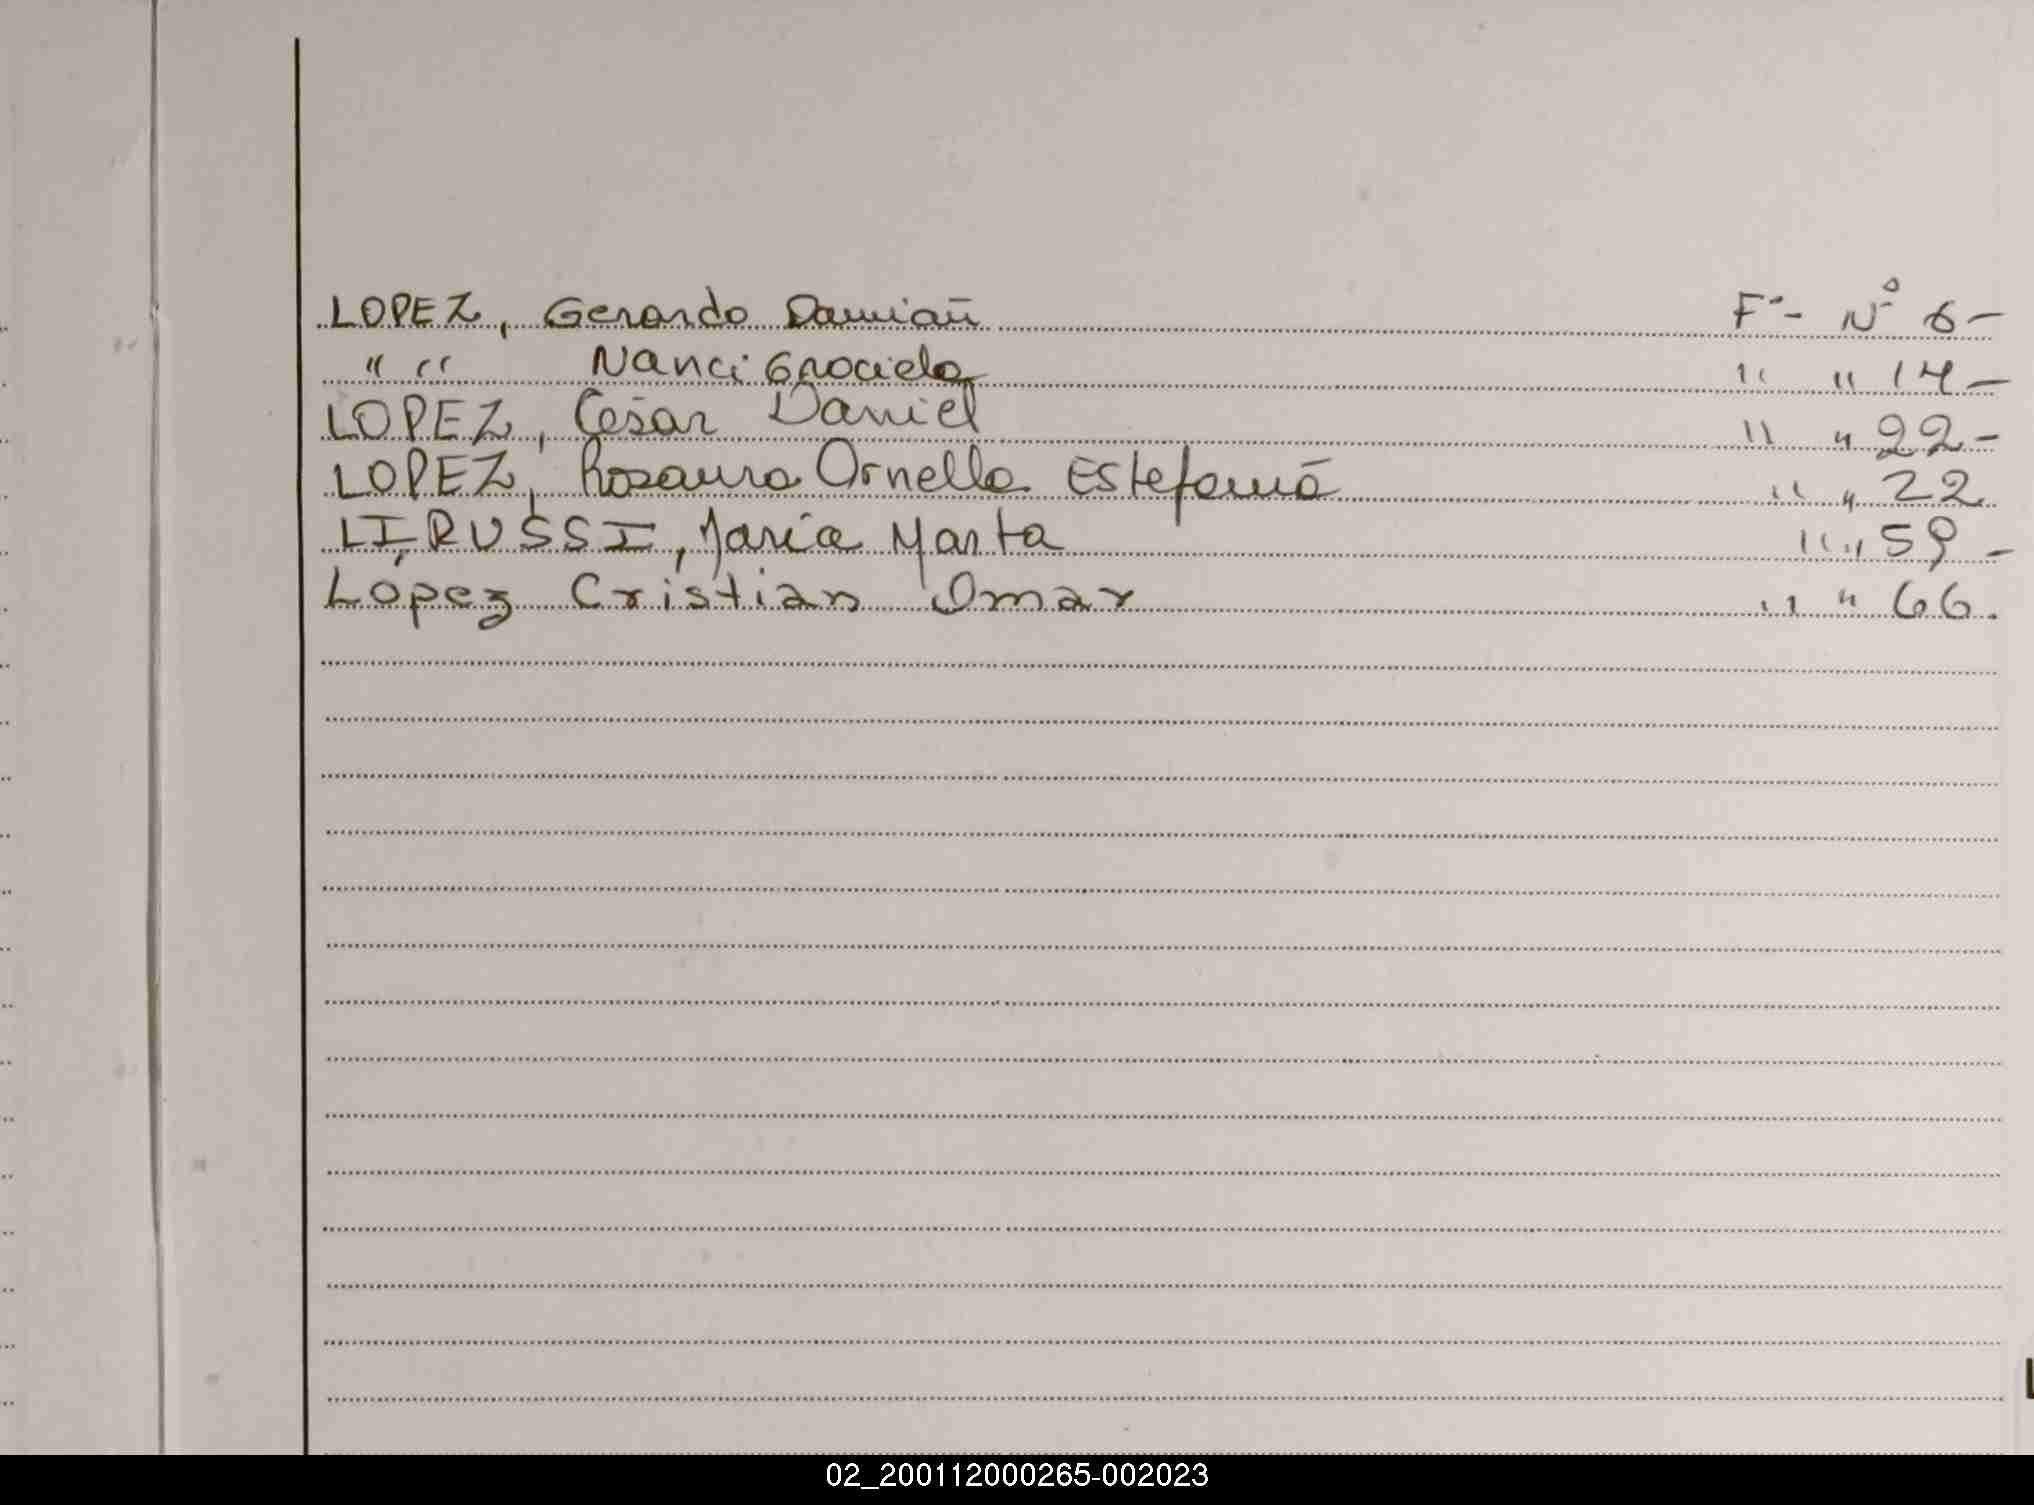 LOPEZ, Gerardo Damián F°- N° 6-
" " Nanci Graciela " " 14-
LOPEZ, César Daniel " " 22-
LOPEZ, Rosaura Ornella Estefanía " " 22
LIRUSSI, María Marta " " 59-
López Cristian Omar " " 66.
L
02_200112000265-002023